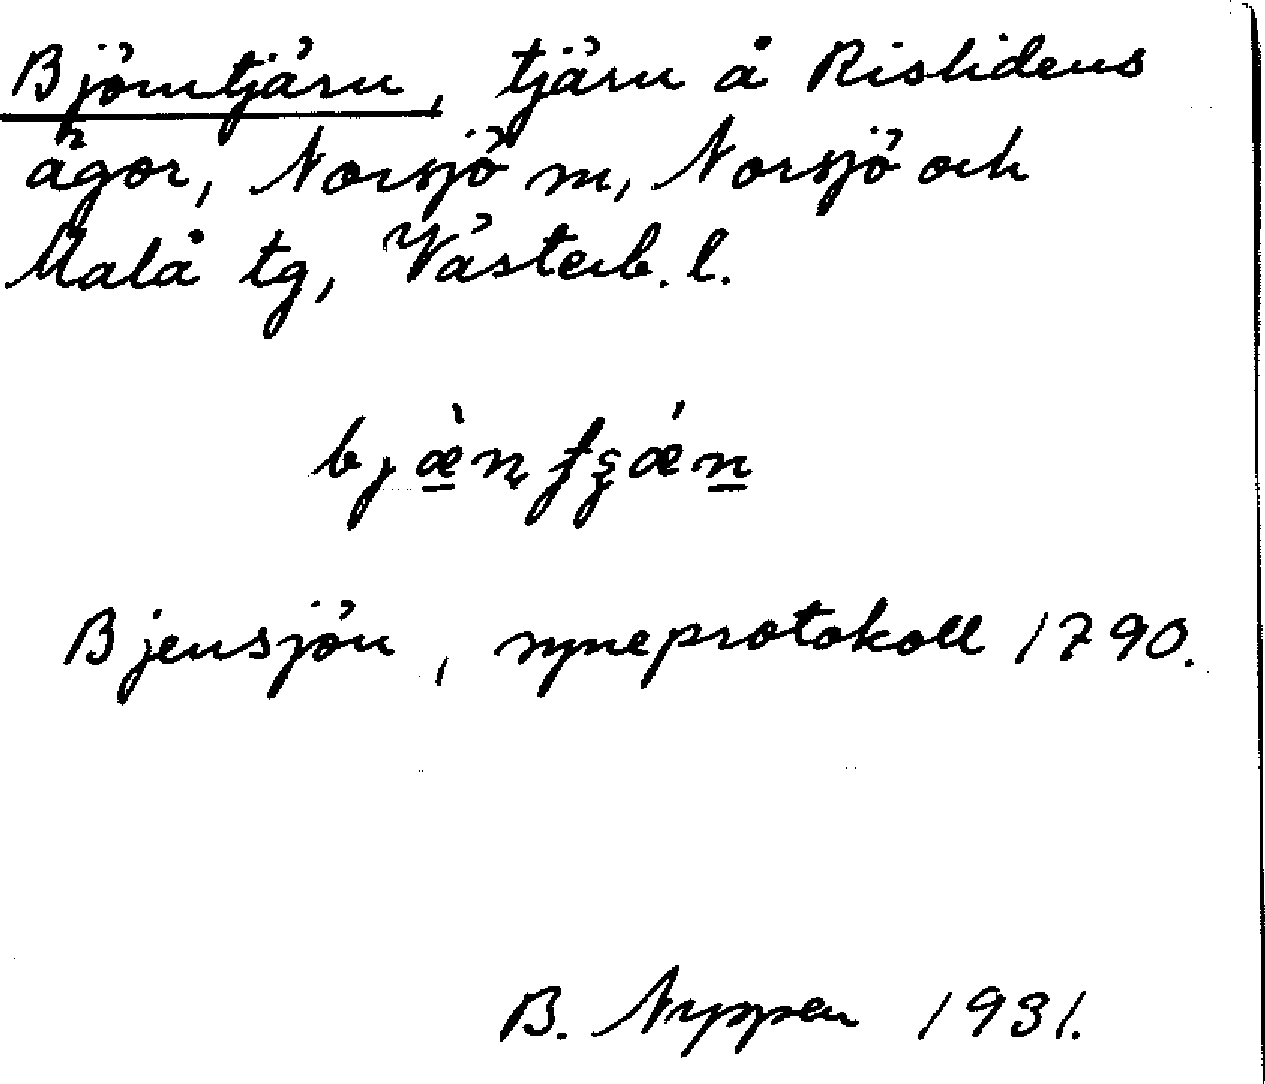 Björntjärn, tjärn å Rislidens
ägor, Norsjö sn, Norsjö och
Malå tg, Västerb. l.
Bjensjön, syneprotokoll 1790.
B. Nyppen 1931.